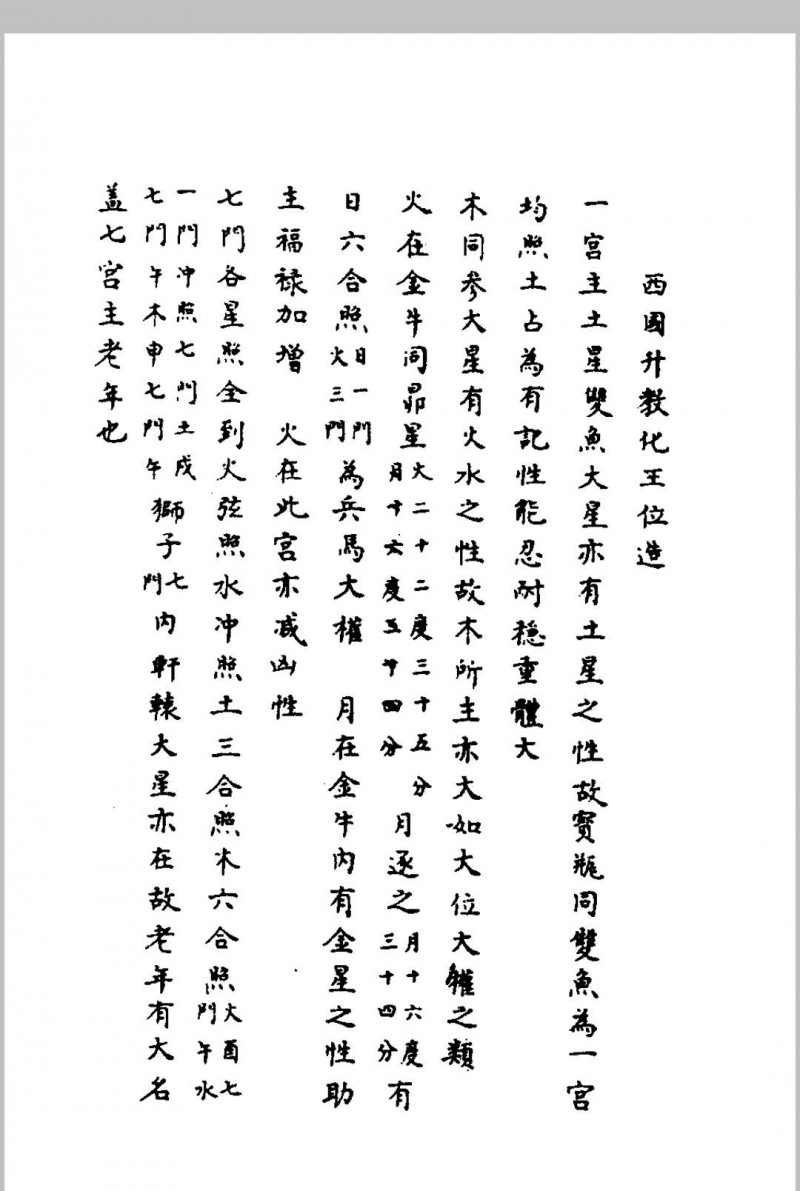 西國升教化王位造
一宮主土星雙魚大星亦有土星之性故寳瓶同雙魚為一宮
均照土占為有記性能忍耐穩重體大
木同參大星有火水之性故木所主亦大如大位大權之類
火在金牛同昴星火二十二度三十五分月十六度五十四分月逐之月十六度三十四分有
日六合照日一門火三門為兵馬大權　月在金牛內有金星之性助
主福禄加增　火在此宮亦减凶性
七門各星照全到火弦照水冲照土三合照木六合照火酉七門午水
一門冲照七門土戍七門午木申七門午獅子七門內軒轅大星亦在故老年有大名
盖七宮主老年也